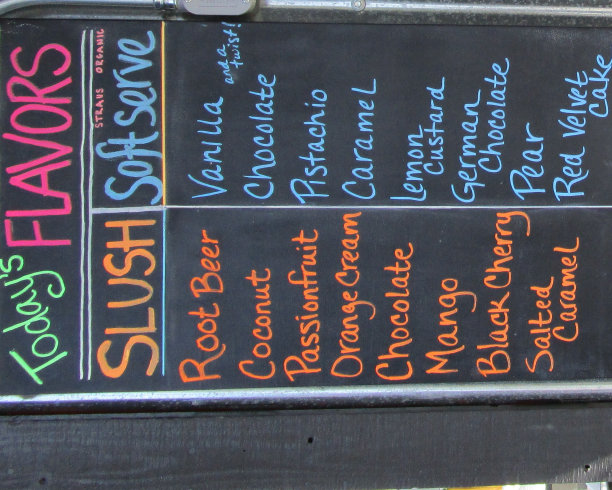 Today's FLAVORS
SLUSH
Root Beer
Coconut
Passionfruit
Orange Cream
Chocolate
Mango
Black Cherry
Salted
Caramel
STRAUS ORGANIC
Soft serve
Vanilla
and a
twist!
Chocolate
Pistachio
Caramel
Lemon
Custard
German
Chocolate
Pear
Red Velvet
Cake